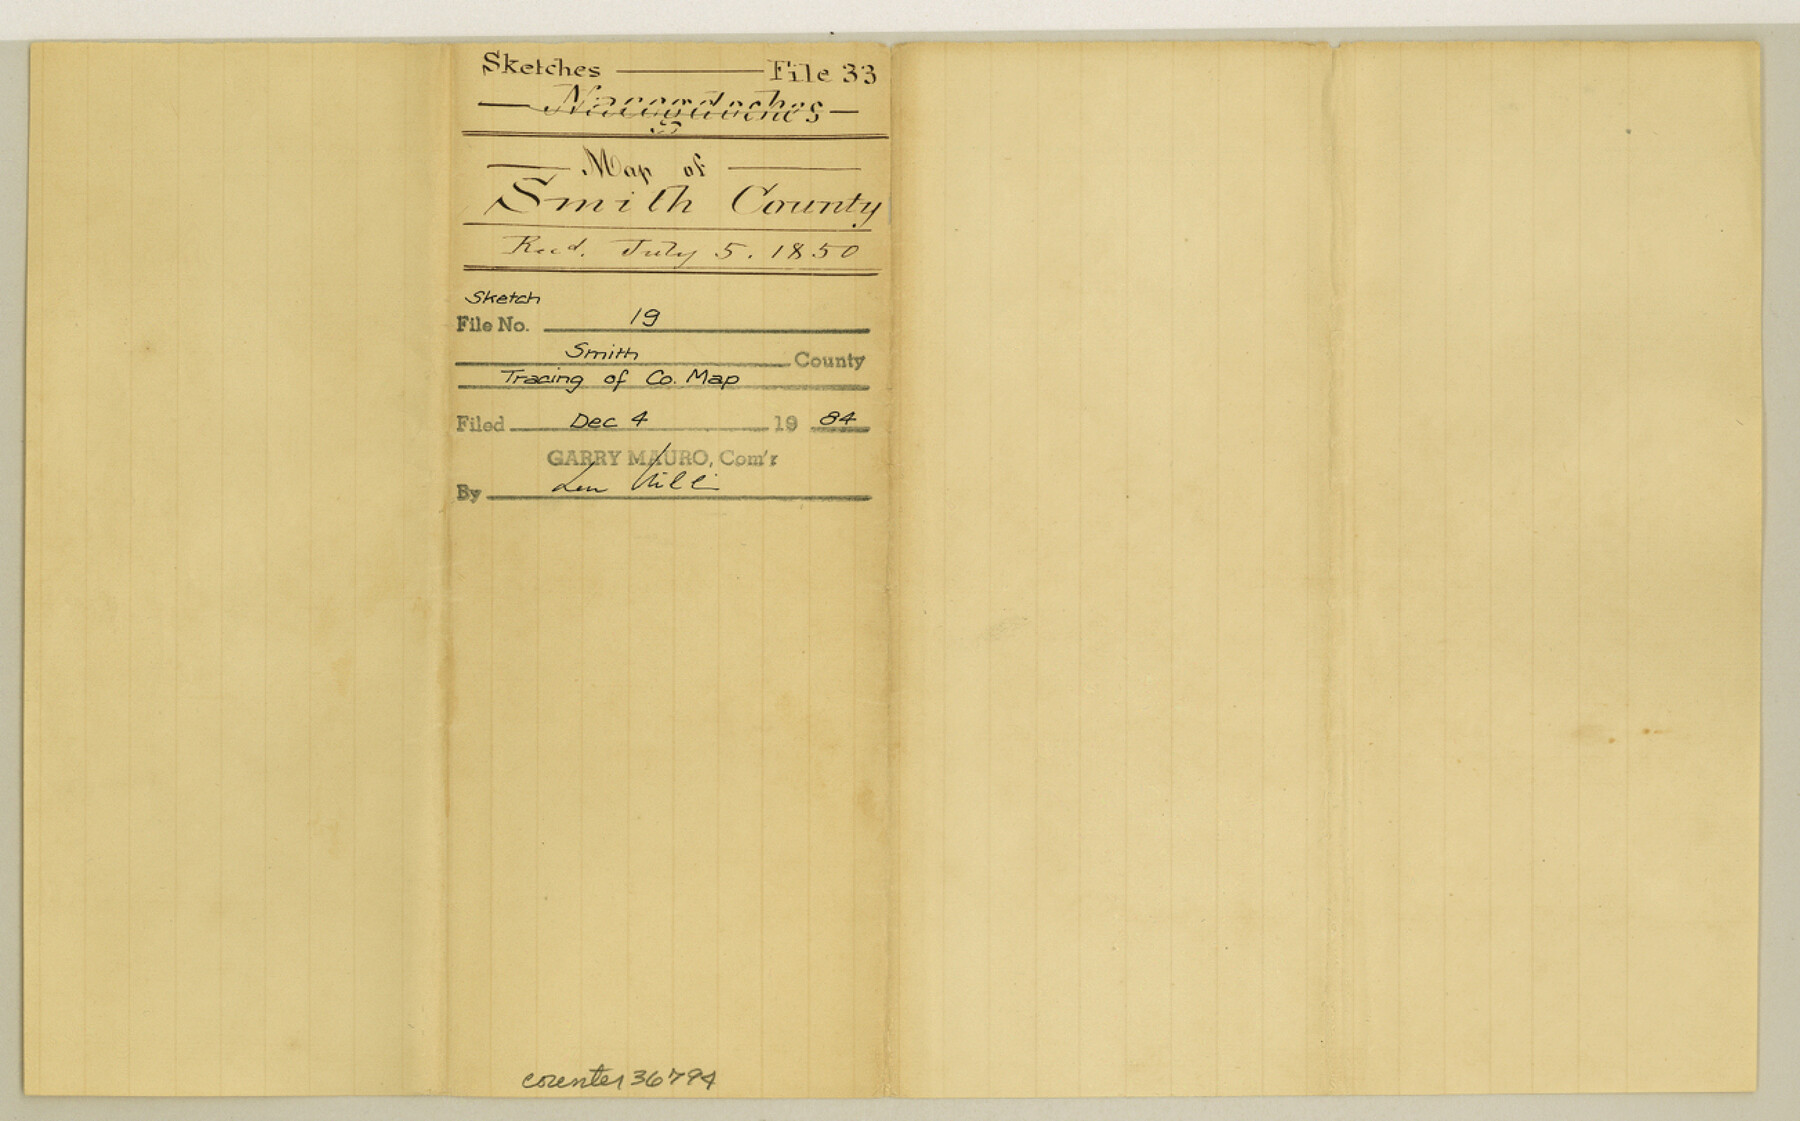 Sketches — File 33
— Nacogdoches —
— Map of —
Smith County
Recd. July 5. 1850
Sketch
File No. 19
Smith County
Tracing of Co. Map
Filed Dec 4 19 84
GARRY MAURO, Com'r
By
counter 36794